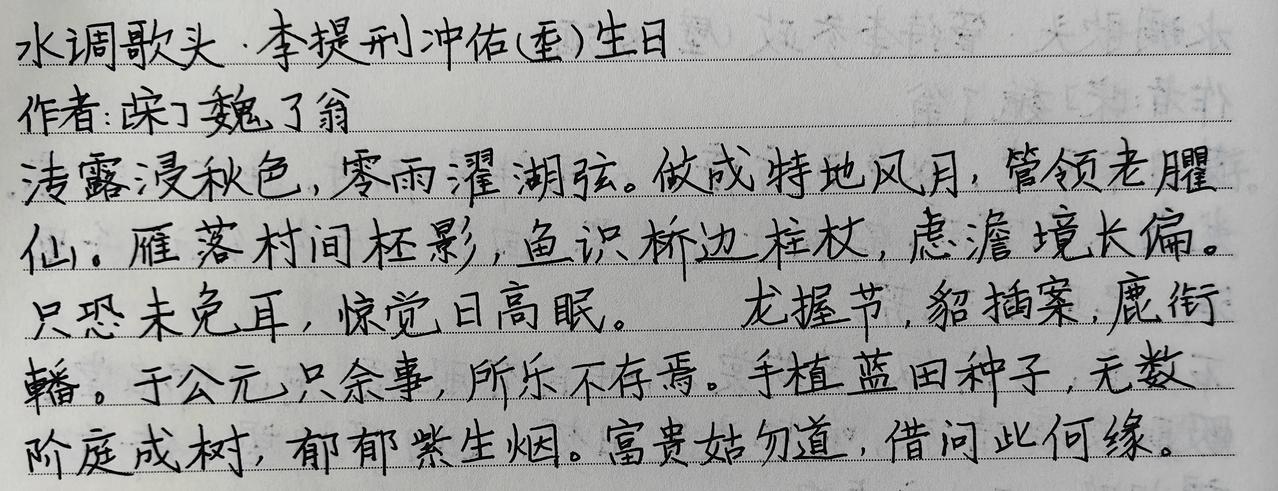 水调歌头·李提刑冲佑(垔)生日
作者:[宋]魏了翁
涛露浸秋色,零雨濯湖弦。做成特地风月,管领老臞
仙。雁落村间柸影,鱼识桥边柱杖,虑澹境长偏。
只恐未免耳,惊觉日高眠。 龙握节,貂插案,鹿衔
轓。于公元只余事,所乐不存焉。手植蓝田种子,无数
阶庭成树,郁郁紫生烟。富贵姑勿道,借问此何缘。